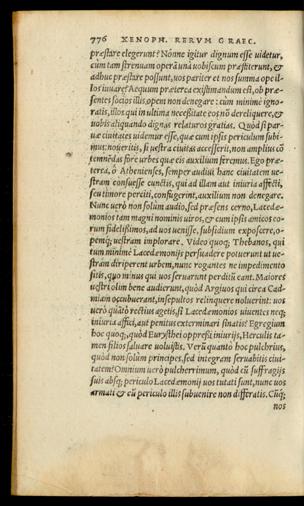 776 XENOPH. RERVM GRAEC.
præstare elegerunt? Nónne igitur dignum esse uidetur,
cum tam strenuam operā unà uobiscum præstiterint, &
adhuc præstare possunt, uos pariter et nos summa ope il-
los iuuare? Aequum præterea existimandum est, ob præ-
sentes socios illis, opem non denegare: cùm minimè igno-
ratis, illos qui in ultima necessitate eos nō dereliquere, &
uobis aliquando dignas relaturos gratias. Quòd si par-
uæ ciuitates uidemur esse, quæ cum ipsis periculum subi-
mus: noueritis, si uestra ciuitas accesserit, non amplius cō
temnēdas fore urbes quæ eis auxilium feremus. Ego præ-
terea, ô Athenienses, semper audiui hanc ciuitatem ue-
stram consuesse cunctis, qui ad illam aut iniuria affecti,
seu timore perciti, confugerint, auxilium non denegare.
Nunc uerò non solùm audio, sed præsens cerno, Lacedæ-
monios tam magni nominis uiros, & cum ipsis amicos eo-
rum fidelissimos, ad uos uenisse, subsidium exposcere, o-
pemq; uestram implorare. Video quoq; Thebanos, qui
tum minimè Lacedæmonijs persuadere potuerunt ut ue-
stram diriperent urbem, nunc rogantes ne impedimento
sitis, quo minus qui uos seruarunt perditū eant. Maiores
uestri olim bene audierunt, quòd Argiuos qui circa Cad-
miam occubuerant, insepultos relinquere noluerint: uos
uerò quātò rectius agetis, si Lacedæmonios uiuentes neq;
iniuria affici, aut penitus exterminari sinatis? Egregium
hoc quoq;, quòd Eurysthei oppressi iniurijs, Herculis ta-
men filios saluare uoluistis. Verū quantò hoc pulchrius,
quòd non solùm principes, sed integram seruabitis ciui-
tatem? Omnium uerò pulcherrimum, quòd cū suffragijs
suis absq; periculo Lacedæmonij uos tutati sunt, nunc uos
armati & cū periculo illis subuenire non differatis. Cūq;
nos